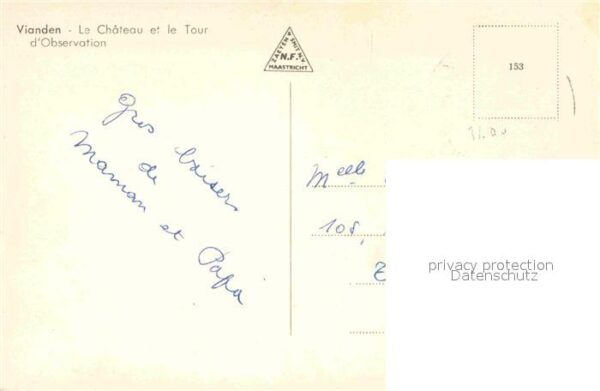 Vianden - Le Château et le Tour
d'Observation
ZAETEN & SMIT N.V.
N.F.
MAASTRICHT
153
Gros baisers
de
Maman et Papa
Melle
108,
privacy protection
Datenschutz